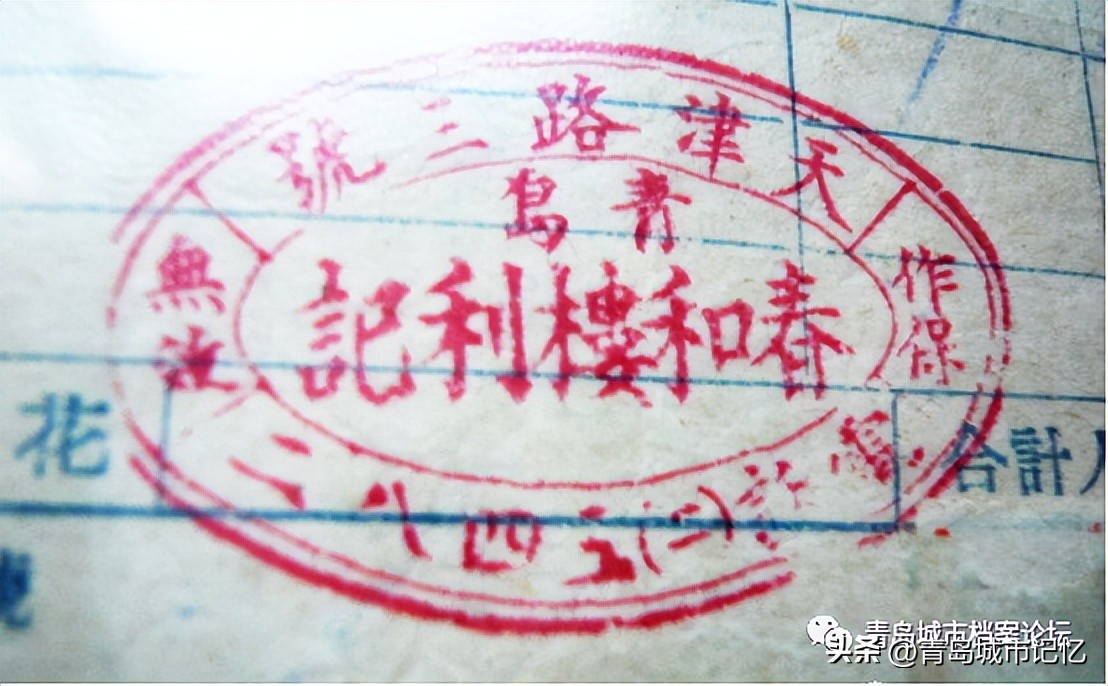 天津路三號
青島
春和樓利記
作保
無效
電話(二)五四八二
花
合計
青岛城市档案论坛
头条 @青岛城市记忆